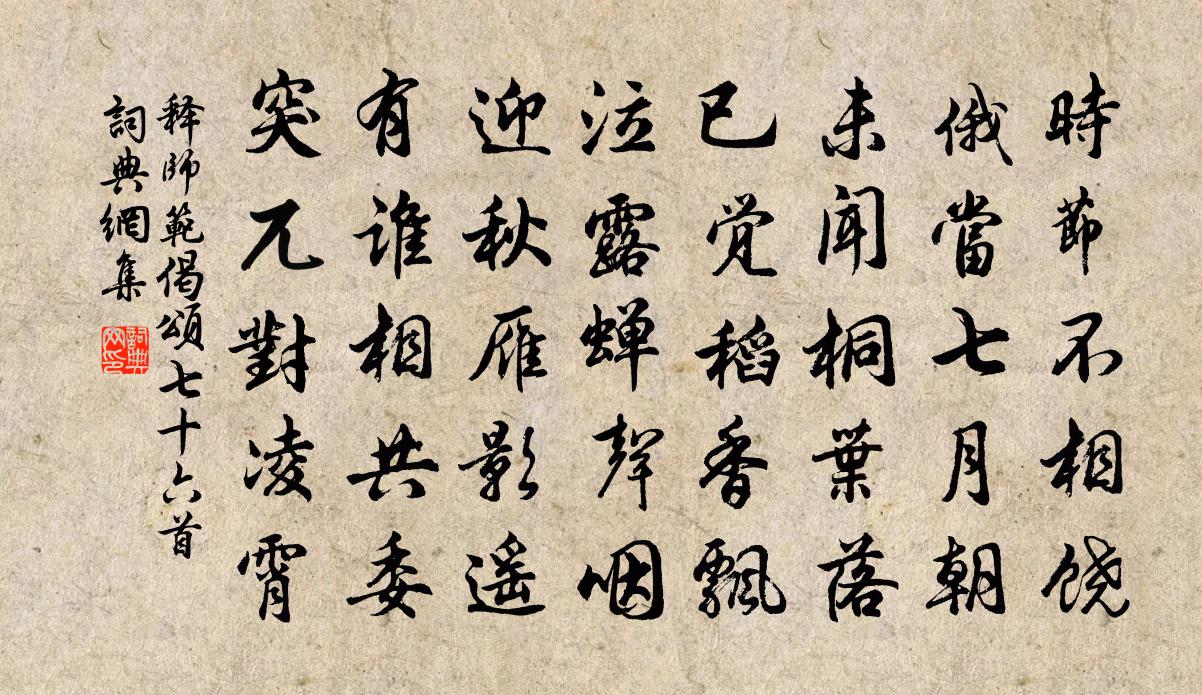 時節不相饶
俄當七月朝
未聞桐葉落
已覚稻香飄
泣露蝉聲咽
迎秋雁影遥
有誰相共委
突兀對凌霄
释師範偈頌七十六首
詞典網集
詞典网印